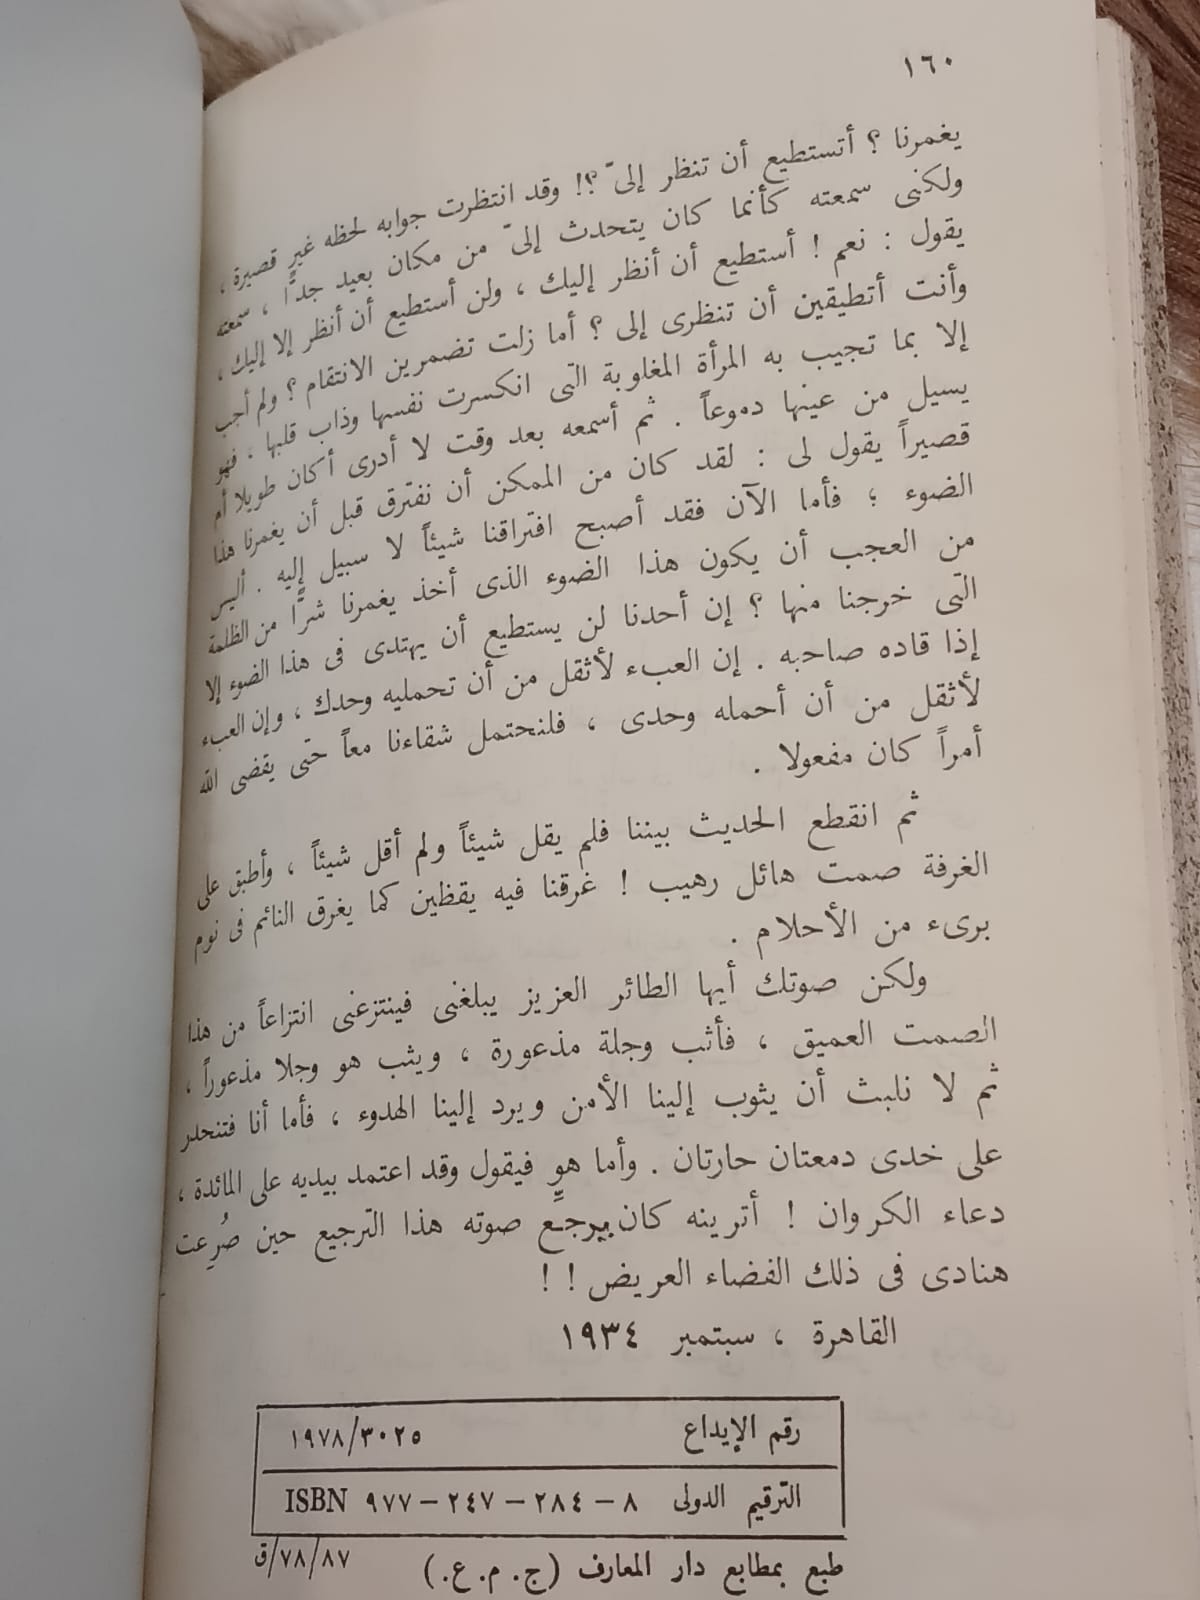 ١٦٠
يغمرنا ؟ أتستطيع أن تنظر إلىّ ؟! وقد انتظرت جوابه لحظه غير قصيرة ،
ولكنى سمعته كأنما كان يتحدث إلىّ من مكان بعيد جدًّا ، سمعته
يقول : نعم ! أستطيع أن أنظر إليك ، ولن أستطيع أن أنظر إلا إليك ،
وأنت أتطيقين أن تنظرى إلى ؟ أما زلت تضمرين الانتقام ؟ ولم أجب
إلا بما تجيب به المرأة المغلوبة التى انكسرت نفسها وذاب قلبها ، فهو
يسيل من عينها دموعاً . ثم أسمعه بعد وقت لا أدرى أكان طويلا أم
قصيراً يقول لى : لقد كان من الممكن أن نفترق قبل أن يغمرنا هذا
الضوء ؛ فأما الآن فقد أصبح افتراقنا شيئاً لا سبيل إليه . أليس
من العجب أن يكون هذا الضوء الذى أخذ يغمرنا شرًّا من الظلمة
التى خرجنا منها ؟ إن أحدنا لن يستطيع أن يهتدى فى هذا الضوء إلا
إذا قاده صاحبه . إن العبء لأثقل من أن تحمليه وحدك ، وإن العبء
لأثقل من أن أحمله وحدى ، فلنحتمل شقاءنا معاً حتى يقضى الله
أمراً كان مفعولا .
ثم انقطع الحديث بيننا فلم يقل شيئاً ولم أقل شيئاً ، وأطبق على
الغرفة صمت هائل رهيب ! غرقنا فيه يقظين كما يغرق النائم فى نوم
برىء من الأحلام .
ولكن صوتك أيها الطائر العزيز يبلغنى فينتزعنى انتزاعاً من هذا
الصمت العميق ، فأثب وجلة مذعورة ، ويثب هو وجلا مذعوراً ،
ثم لا نلبث أن يثوب إلينا الأمن ويرد إلينا الهدوء ، فأما أنا فتنحدر
على خدى دمعتان حارتان . وأما هو فيقول وقد اعتمد بيديه على المائدة ،
دعاء الكروان ! أترينه كان يرجِّع صوته هذا الترجيع حين صُرِعت
هنادى فى ذلك الفضاء العريض ! !
القاهرة ، سبتمبر ١٩٣٤
رقم الإيداع ١٩٧٨/٣٠٢٥
الترقيم الدولى ISBN ٩٧٧ – ٢٤٧ – ٢٨٤ – ٨
٧٨/٨٧/ق
طبع بمطابع دار المعارف (ج. م. ع.)